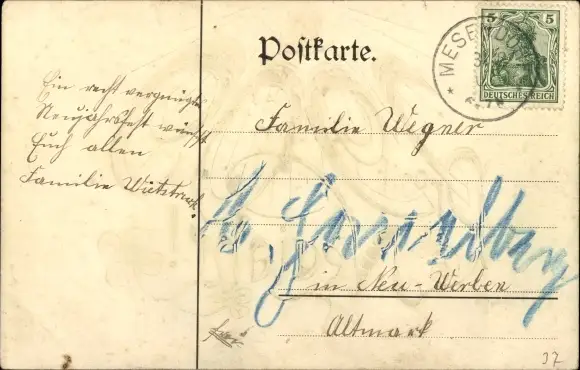 Postkarte.
5 5
DEUTSCHES REICH
Ein recht vergnügtes
Neujahrsfest wünscht
Euch allen
Familie
Familie Wegner
in Neu-Werben
Altmark
frei
37